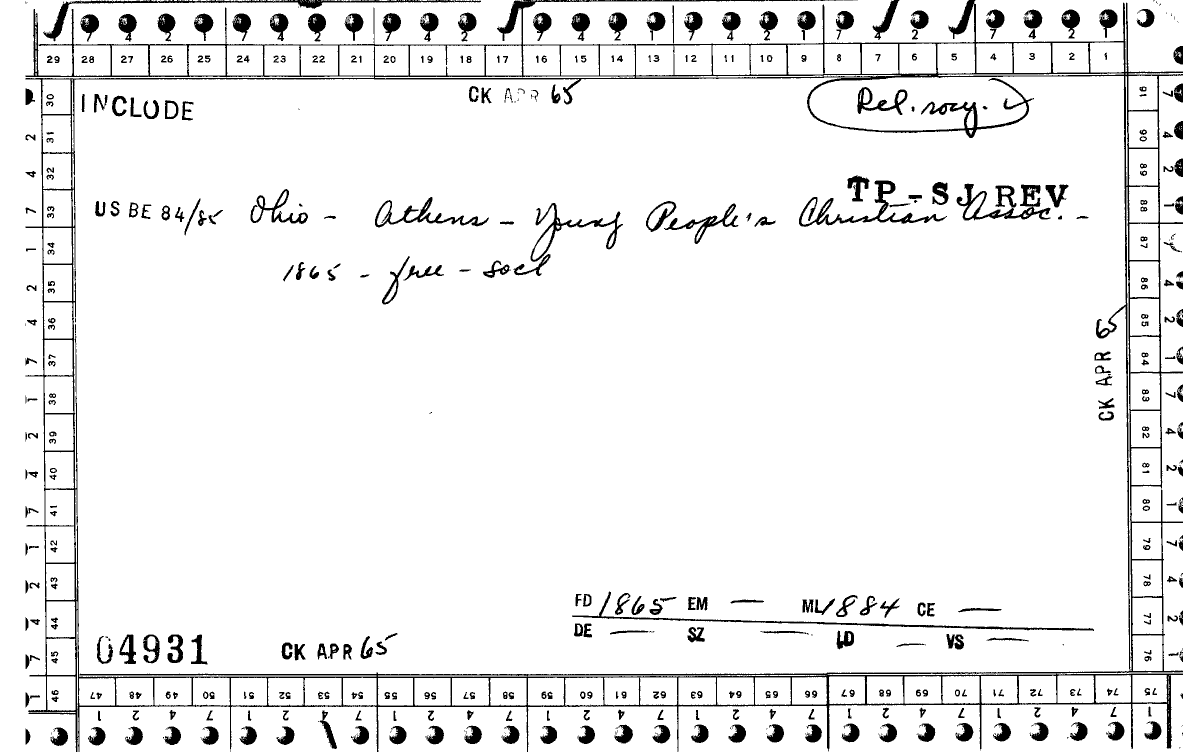 7 4 2 1 7 4 2 1 7 4 2 1 7 4 2 1 7 4 2 1 7 4 2 1
29 28 27 26 25 24 23 22 21 20 19 18 17 16 15 14 13 12 11 10 9 8 7 6 5 4 3 2 1
INCLUDE
CK APR 65
Rel. socy. ✓
TP-SJ REV
US BE 84/85 Ohio - Athens - Young People's Christian Assoc. -
1865 - free - socl
CK APR 65
FD 1865 EM — ML 1884 CE —
DE — SZ — LD — VS —
04931
CK APR 65
30 31 32 33 34 35 36 37 38 39 40 41 42 43 44 45 46
47 48 49 50 51 52 53 54 55 56 57 58 59 60 61 62 63 64 65 66 67 68 69 70 71 72 73 74 75
76 77 78 79 80 81 82 83 84 85 86 87 88 89 90 91